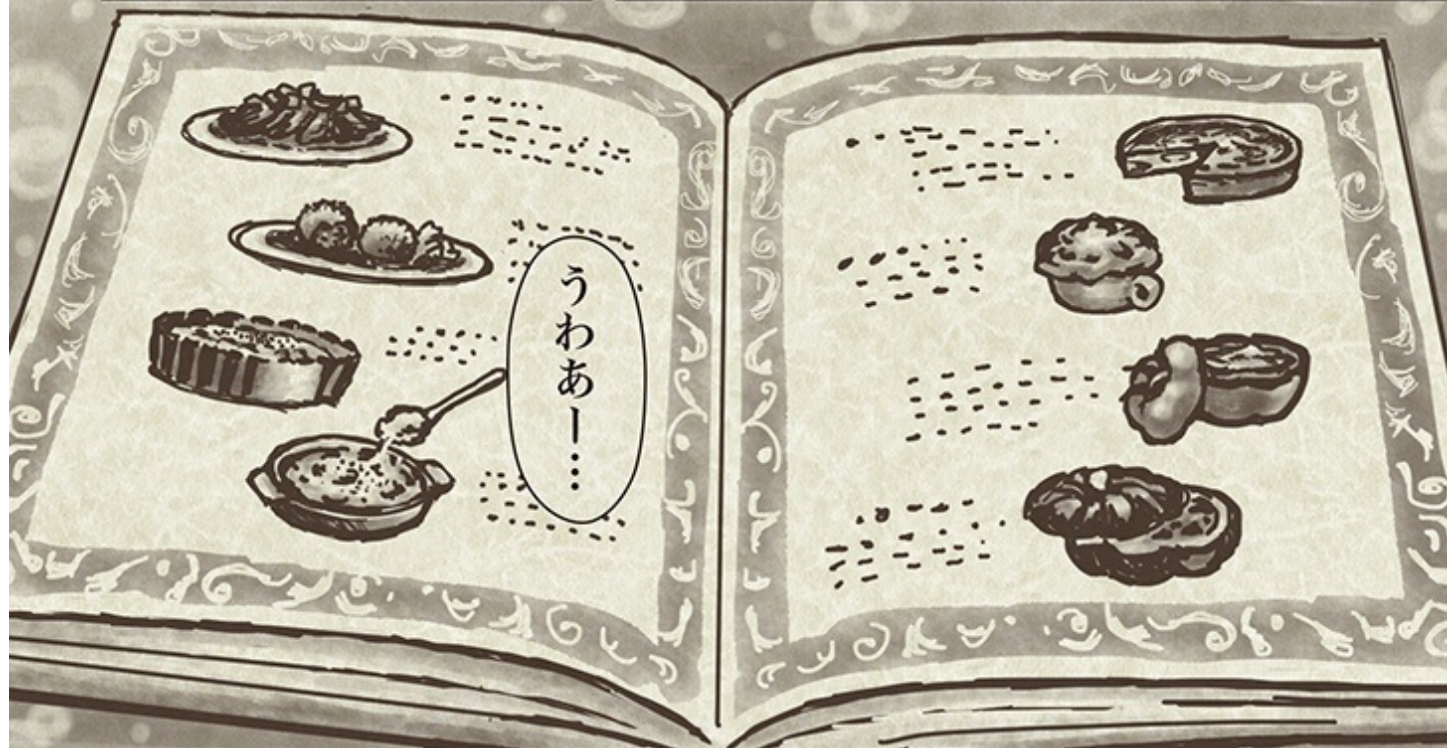 うわあー…